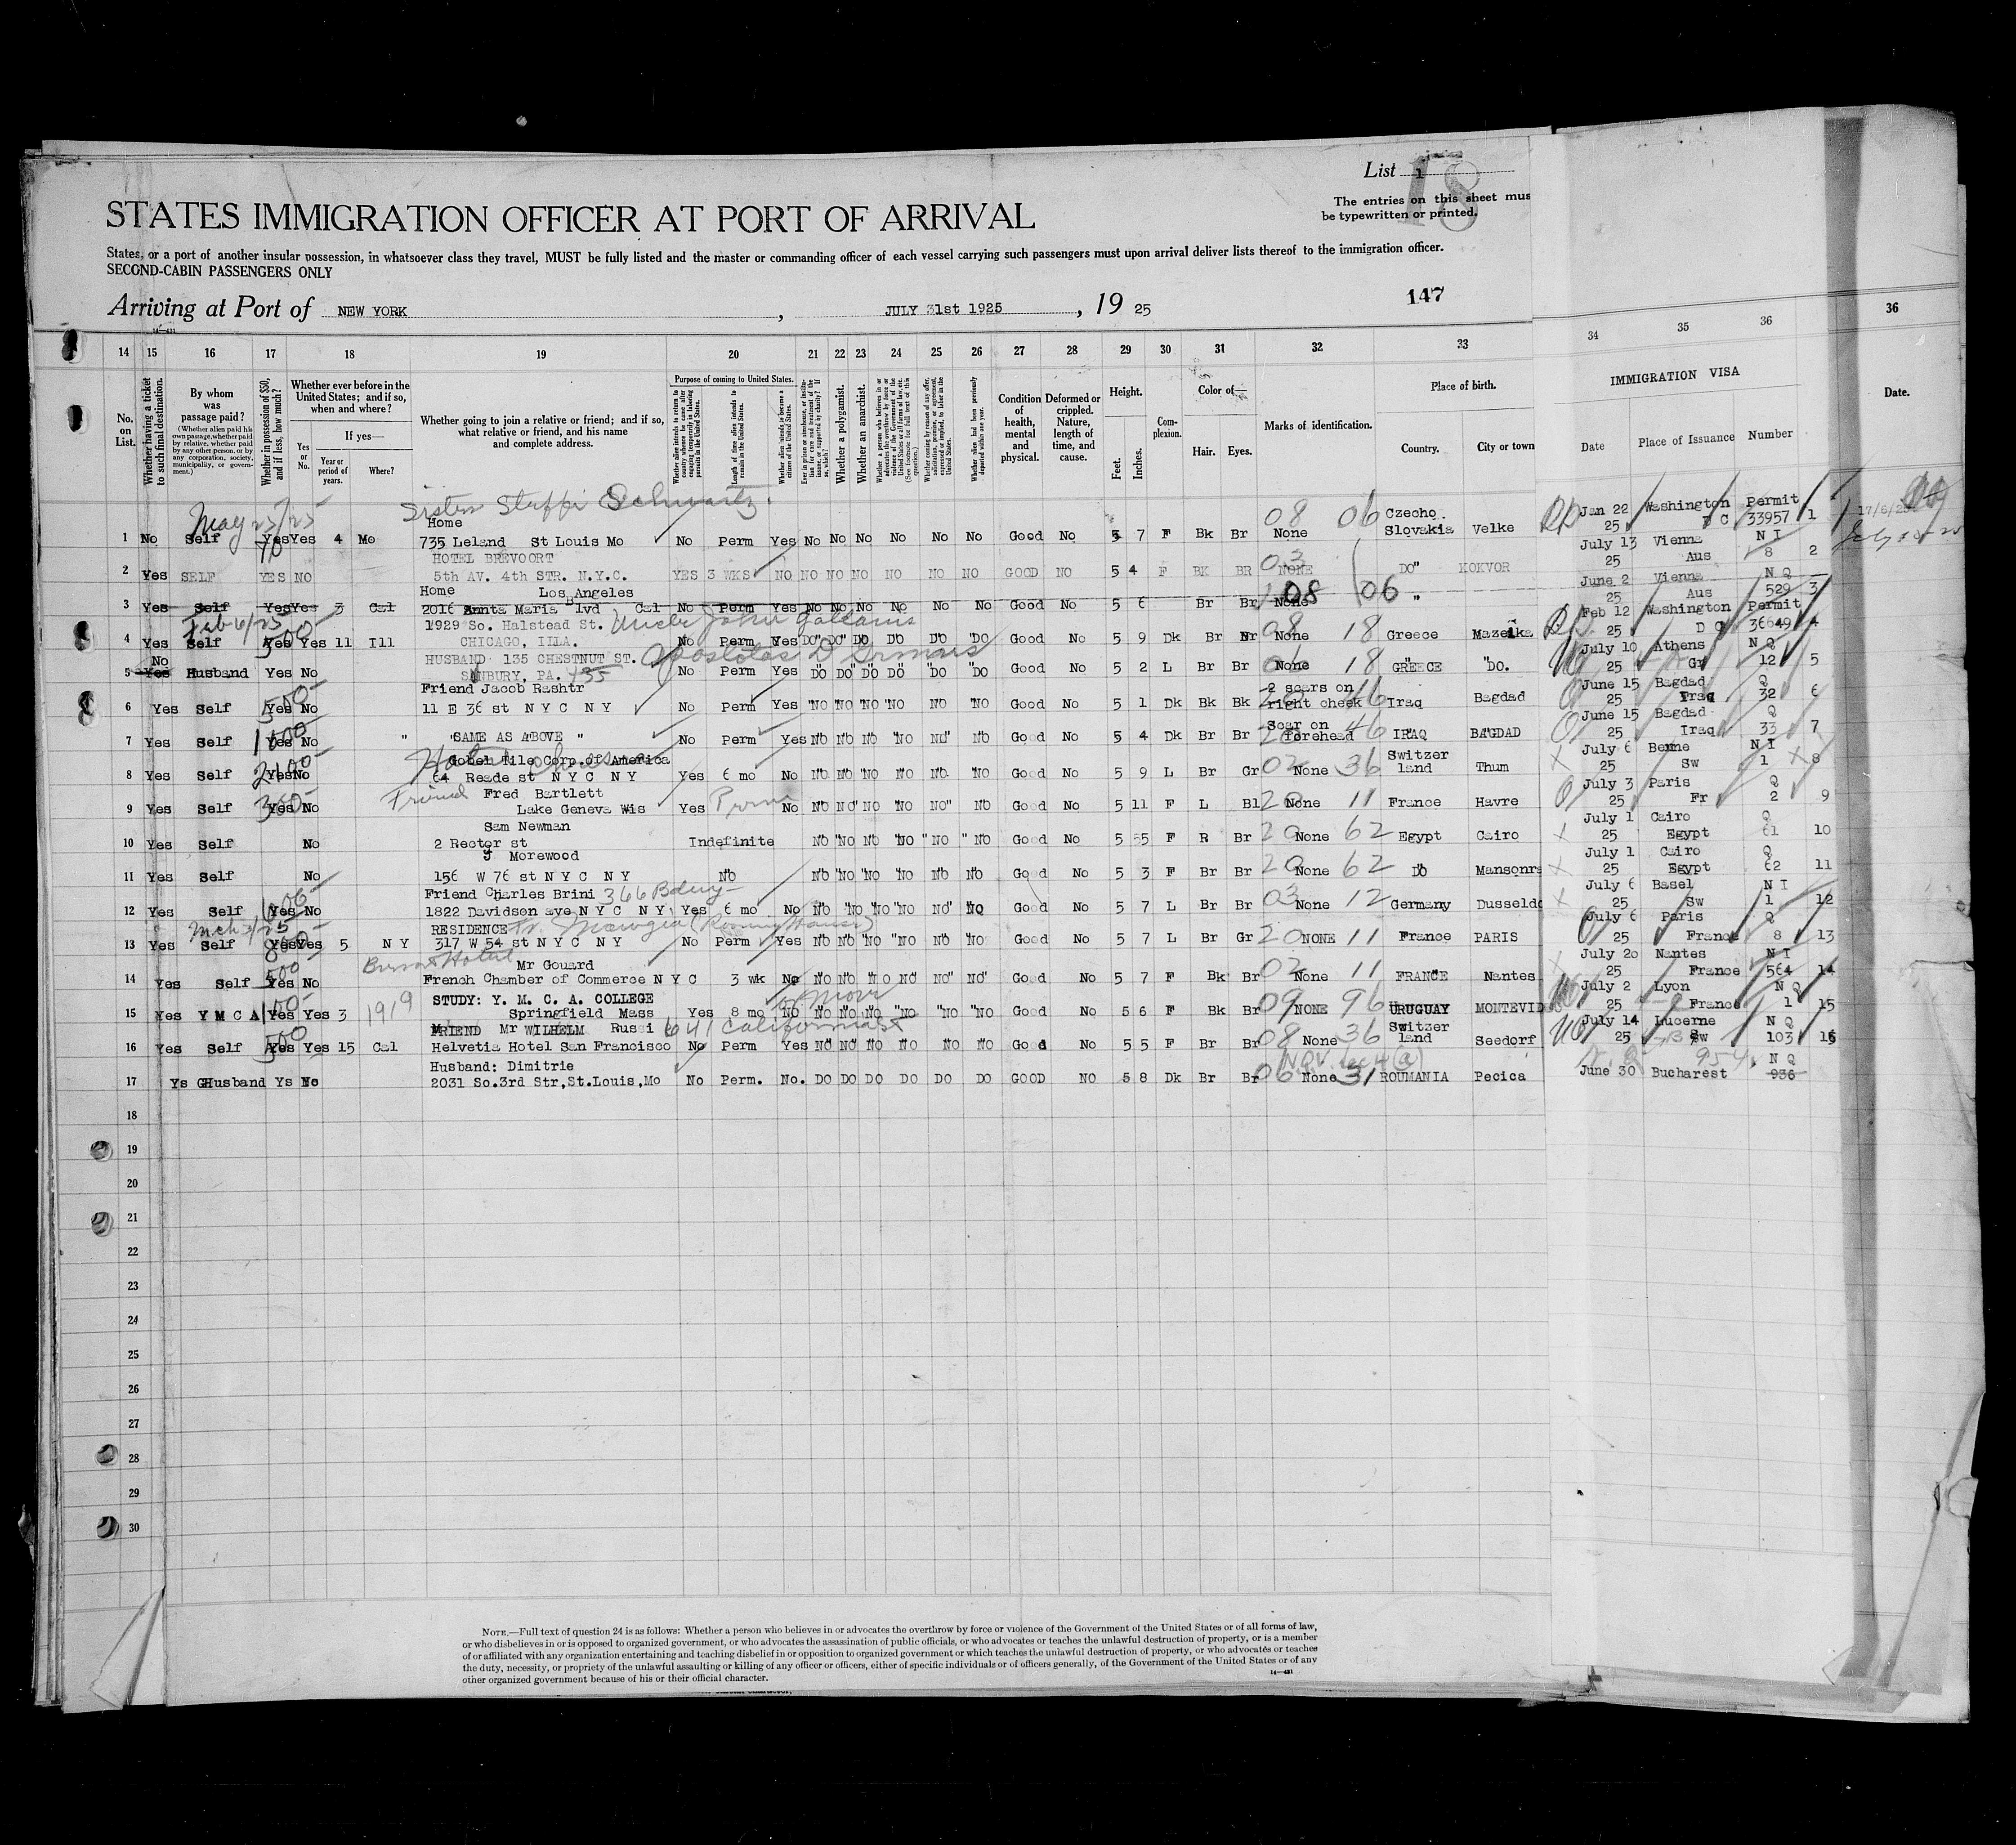 List 1
18
The entries on this sheet mus
be typewritten or printed.
STATES IMMIGRATION OFFICER AT PORT OF ARRIVAL
States, or a port of another insular possession, in whatsoever class they travel, MUST be fully listed and the master or commanding officer of each vessel carrying such passengers must upon arrival deliver lists thereof to the immigration officer.
SECOND-CABIN PASSENGERS ONLY
147
Arriving at Port of NEW YORK, JULY 31st 1925, 19 25
14 15 16 17 18 19 20 21 22 23 24 25 26 27 28 29 30 31 32 33 34 35 36 36
No. on List.
Whether having a ticket to such final destination.
By whom was passage paid?
(Whether alien paid his own passage, whether paid by relative, whether paid by any other person, or by any corporation, society, municipality, or government.)
Whether in possession of $50, and if less, how much?
Whether ever before in the United States; and if so, when and where?
Yes or No.
If yes—
Year or period of years.
Where?
Whether going to join a relative or friend; and if so, what relative or friend, and his name and complete address.
Purpose of coming to United States.
Length of time alien intends to remain in the United States.
Whether alien intends to become a citizen of the United States.
Whether a polygamist.
Whether an anarchist.
Condition of health, mental and physical.
Deformed or crippled. Nature, length of time, and cause.
Height.
Feet. Inches.
Complexion.
Color of—
Hair. Eyes.
Marks of identification.
Place of birth.
Country. City or town
IMMIGRATION VISA
Date Place of Issuance Number
Date.
Sister Steffi Schwartz.
May 25/25 Home 08 06 Czecho Jan 22 Washington Permit
1 No Self Yes Yes 4 Mo 735 Leland St Louis Mo No Perm Yes No No No No No No Good No 5 7 F Bk Br None Slovakia Velke 25 D C 33957 1
HOTEL BREVOORT July 13 Vienna N I
2 Yes SELF YES NO 5th AV. 4th STR. N.Y.C. YES 3 WKS NO NO NO NO NO NO NO GOOD NO 5 4 F BK BR NONE DO" KOKVOR 25 Aus 8 2
Home Los Angeles June 2 Vienna N Q
3 Yes Self Yes Yes 3 Cal 2016 Santa Maria Blvd Cal No Perm Yes No No No No No No Good No 5 6 Br Br None 08 06 " 25 Aus 529 3
Feb 6/25 500 1929 So. Halstead St. Uncle John Feb 12 Washington Permit
4 Yes Self Yes Yes 11 Ill CHICAGO, ILLA. No Perm Yes DO" DO" DO DO DO "DO Good No 5 9 Dk Br Br 08 None 18 Greece Mazeika 25 D C 36649 4
No HUSBAND 135 CHESTNUT ST. Apostolos D July 10 Athens N Q
5 Yes Husband Yes No SUNBURY, PA. 435 No Perm Yes DO DO DO DO DO DO Good No 5 2 L Br Br None 18 GREECE "DO. 25 Gr 12 5
500 Friend Jacob Rashtr 2 scars on June 15 Bagdad Q
6 Yes Self Yes No 11 E 36 st N Y C N Y No Perm Yes "NO "NO "NO "NO NO "NO Good No 5 1 Dk Bk Bk right cheek 46 Iraq Bagdad 25 Iraq 32 6
1000 Scar on June 15 Bagdad Q
7 Yes Self Yes No " "SAME AS ABOVE " No Perm Yes NO NO NO "NO NO NO Good No 5 4 Dk Br Br forehead 46 IRAQ BAGDAD 25 Iraq 33 7
2400 Gobel Tile Corp. of America Switzer July 6 Berne N I
8 Yes Self Yes No 64 Reade st N Y C N Y Yes 6 mo No NO NO "NO "NO NO "NO Good No 5 9 L Br Gr 02 None 36 land Thum 25 Sw 1 8
300 Friend Fred Bartlett July 3 Paris Q
9 Yes Self Yes No Lake Geneva Wis Yes Perm No NO NO" NO "NO NO" NO Good No 5 11 F L Bl 20 None 11 France Havre 25 Fr 2 9
Sam Newman July 1 Cairo Q
10 Yes Self No 2 Rector st Indefinite NO "NO NO "NO "NO "NO Good No 5 5 F R Br 20 None 62 Egypt Cairo 25 Egypt 61 10
J Morewood July 1 Cairo Q
11 Yes Self No 156 W 76 st N Y C N Y NO NO "NO "NO "NO NO NO Good No 5 3 F Br Br 20 None 62 DO Mansonra 25 Egypt 62 11
600 Friend Charles Brini 366 July 6 Basel N I
12 Yes Self Yes No 1822 Davidson ave N Y C N Y Yes 6 mo No NO "NO "NO "NO NO" NO Good No 5 7 L Br Br 03 None 12 Germany Dusseldo 25 Sw 1 12
Mch 3/25 800 RESIDENCE (Rooming House) July 6 Paris Q
13 Yes Self Yes Yes 5 N Y 317 W 54 st N Y C N Y No Perm Yes NO NO "NO "NO NO NO Good No 5 7 L Br Gr 20 NONE 11 France PARIS 25 France 8 13
500 Hotel Mr Gouard July 20 Nantes N I
14 Yes Self Yes No French Chamber of Commerce N Y C 3 wk No NO NO NO NO NO" NO" Good No 5 7 F Bk Br 02 None 11 FRANCE Nantes 25 France 564 14
100 1919 STUDY: Y. M. C. A. COLLEGE or more July 2 Lyon N Q
15 Yes Y M C A Yes Yes 3 Springfield Mass Yes 8 mo NO NO NO NO "NO "NO "NO Good No 5 6 F Bk Br 09 NONE 96 URUGUAY MONTEVID 25 France 1 15
500 FRIEND Mr WILHELM Russi 641 California St Switzer July 14 Lucerne N Q
16 Yes Self Yes Yes 15 Cal Helvetia Hotel San Francisco No Perm Yes NO NO NO NO NO NO Good No 5 5 F Br Br 08 None 36 land Seedorf 25 Sw 103 16
Husband: Dimitrie 954 N Q
17 Ys Husband Ys No 2031 So.3rd Str,St.Louis,Mo No Perm. No. DO DO DO DO DO DO GOOD NO 5 8 Dk Br Br 06 None 31 ROUMANIA Pecica June 30 Bucharest 936
18
19
20
21
22
23
24
25
26
27
28
29
30
NOTE.—Full text of question 24 is as follows: Whether a person who believes in or advocates the overthrow by force or violence of the Government of the United States or of all forms of law,
or who disbelieves in or is opposed to organized government, or who advocates the assassination of public officials, or who advocates or teaches the unlawful destruction of property, or is a member
of or affiliated with any organization entertaining and teaching disbelief in or opposition to organized government or which teaches the unlawful destruction of property, or who advocates or teaches
the duty, necessity, or propriety of the unlawful assaulting or killing of any officer or officers, either of specific individuals or of officers generally, of the Government of the United States or of any
other organized government because of his or their official character.
14—431